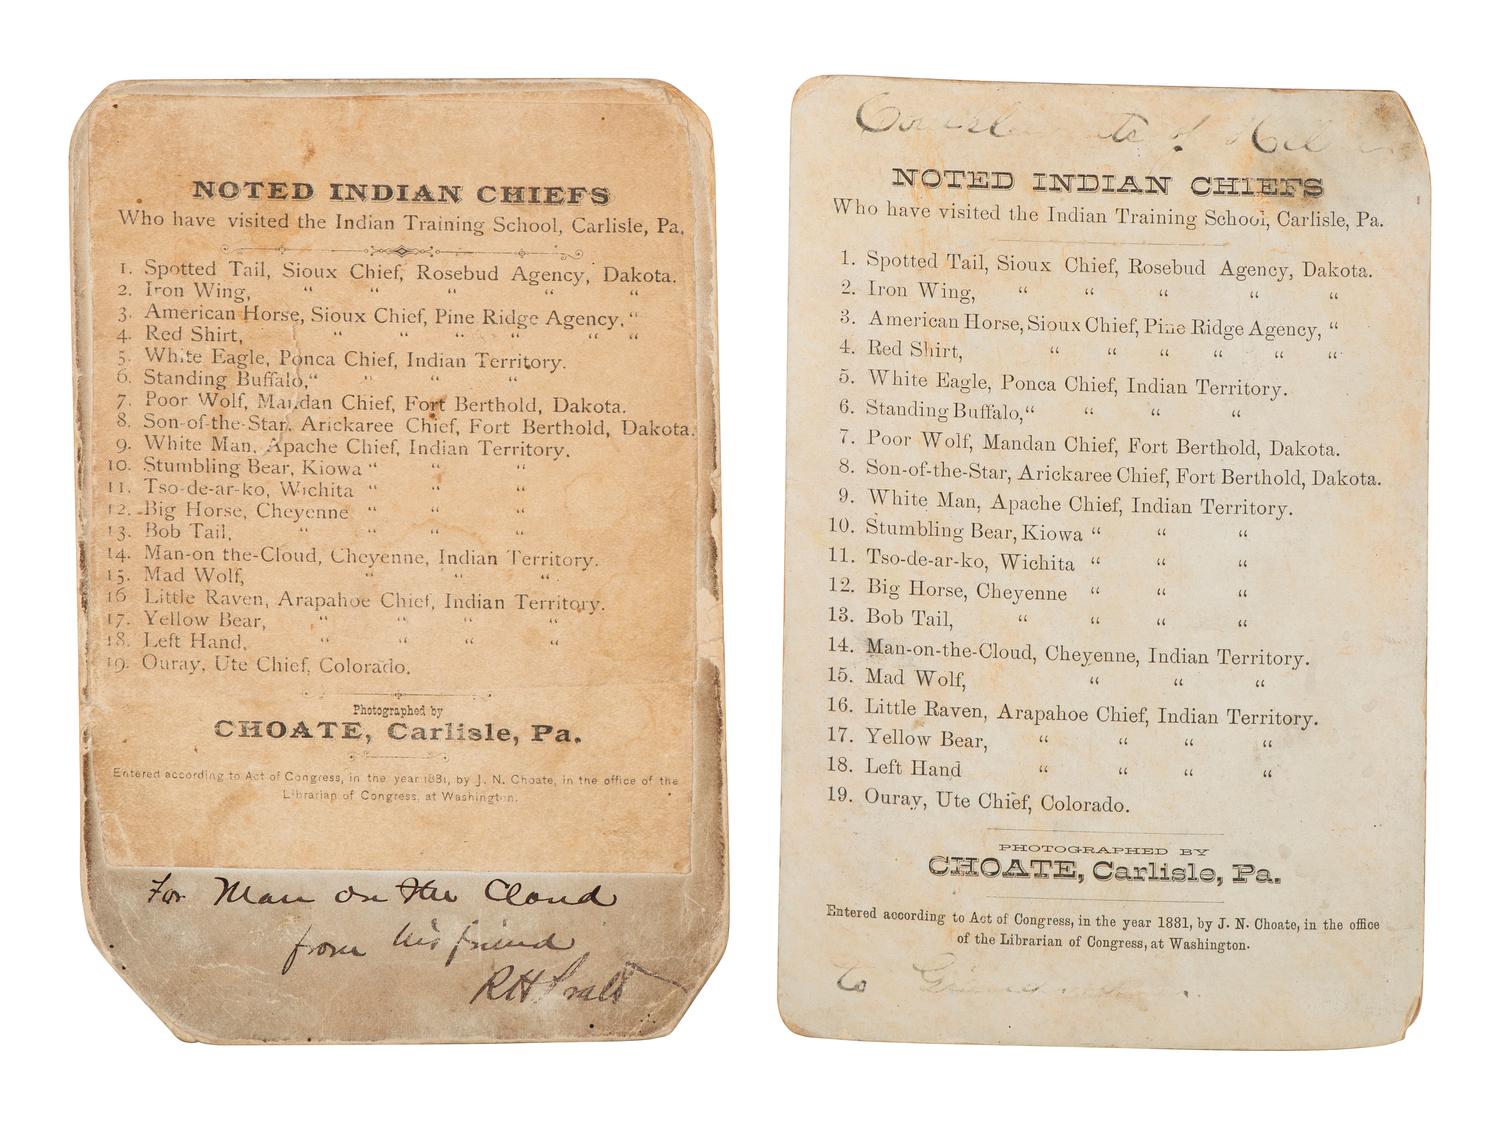 NOTED INDIAN CHIEFS
Who have visited the Indian Training School, Carlisle, Pa.
1. Spotted Tail, Sioux Chief, Rosebud Agency, Dakota.
2. Iron Wing, “ “ “ “ “
3. American Horse, Sioux Chief, Pine Ridge Agency, “
4. Red Shirt, “ “ “ “ “ “
5. White Eagle, Ponca Chief, Indian Territory.
6. Standing Buffalo,“ “ “ “
7. Poor Wolf, Mandan Chief, Fort Berthold, Dakota.
8. Son-of-the-Star, Arickaree Chief, Fort Berthold, Dakota.
9. White Man, Apache Chief, Indian Territory.
10. Stumbling Bear, Kiowa “ “ “
11. Tso-de-ar-ko, Wichita “ “ “
12. Big Horse, Cheyenne “ “ “
13. Bob Tail, “ “ “ “
14. Man-on the-Cloud, Cheyenne, Indian Territory.
15. Mad Wolf, “ “ “
16 Little Raven, Arapahoe Chief, Indian Territory.
17. Yellow Bear, “ “ “ “
18. Left Hand, “ “ “ “
19. Ouray, Ute Chief, Colorado.
Photographed by
CHOATE, Carlisle, Pa.
Entered according to Act of Congress, in the year 1881, by J. N. Choate, in the office of the
Librarian of Congress, at Washington.
For Man on the Cloud
from his friend
RH Pratt
of
NOTED INDIAN CHIEFS
Who have visited the Indian Training School, Carlisle, Pa.
1. Spotted Tail, Sioux Chief, Rosebud Agency, Dakota.
2. Iron Wing, “ “ “ “ “
3. American Horse, Sioux Chief, Pine Ridge Agency, “
4. Red Shirt, “ “ “ “ “ “
5. White Eagle, Ponca Chief, Indian Territory.
6. Standing Buffalo,“ “ “ “
7. Poor Wolf, Mandan Chief, Fort Berthold, Dakota.
8. Son-of-the-Star, Arickaree Chief, Fort Berthold, Dakota.
9. White Man, Apache Chief, Indian Territory.
10. Stumbling Bear, Kiowa “ “ “
11. Tso-de-ar-ko, Wichita “ “ “
12. Big Horse, Cheyenne “ “ “
13. Bob Tail, “ “ “ “
14. Man-on-the-Cloud, Cheyenne, Indian Territory.
15. Mad Wolf, “ “ “
16. Little Raven, Arapahoe Chief, Indian Territory.
17. Yellow Bear, “ “ “ “
18. Left Hand “ “ “ “
19. Ouray, Ute Chief, Colorado.
PHOTOGRAPHED BY
CHOATE, Carlisle, Pa.
Entered according to Act of Congress, in the year 1881, by J. N. Choate, in the office
of the Librarian of Congress, at Washington.
to